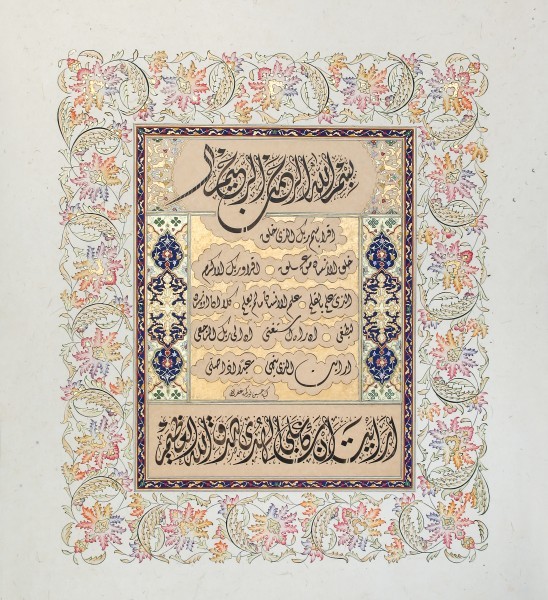 بسم الله الرحمن الرحيم
اقرا باسم ربك الذي خلق
خلق الانسان من علق اقرا وربك الاكرم
الذي علم بالقلم علم الانسان ما لم يعلم كلا ان الانسان
ليطغى ان راه استغنى ان الى ربك الرجعى
ارايت الذي ينهى عبدا اذا صلى
ارايت ان كان على الهدى صدق الله العظيم